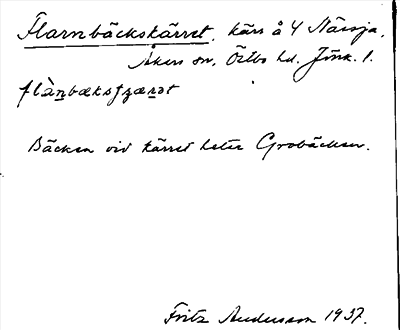 Flarnbäckskärret, kärr å 4 Närsja,
Åkers sn, Östbo hd. Jönk. l.
flànbæksʃʒærət
Bäcken vid kärret heter Grobäcken.
Fritz Andersson 1937.